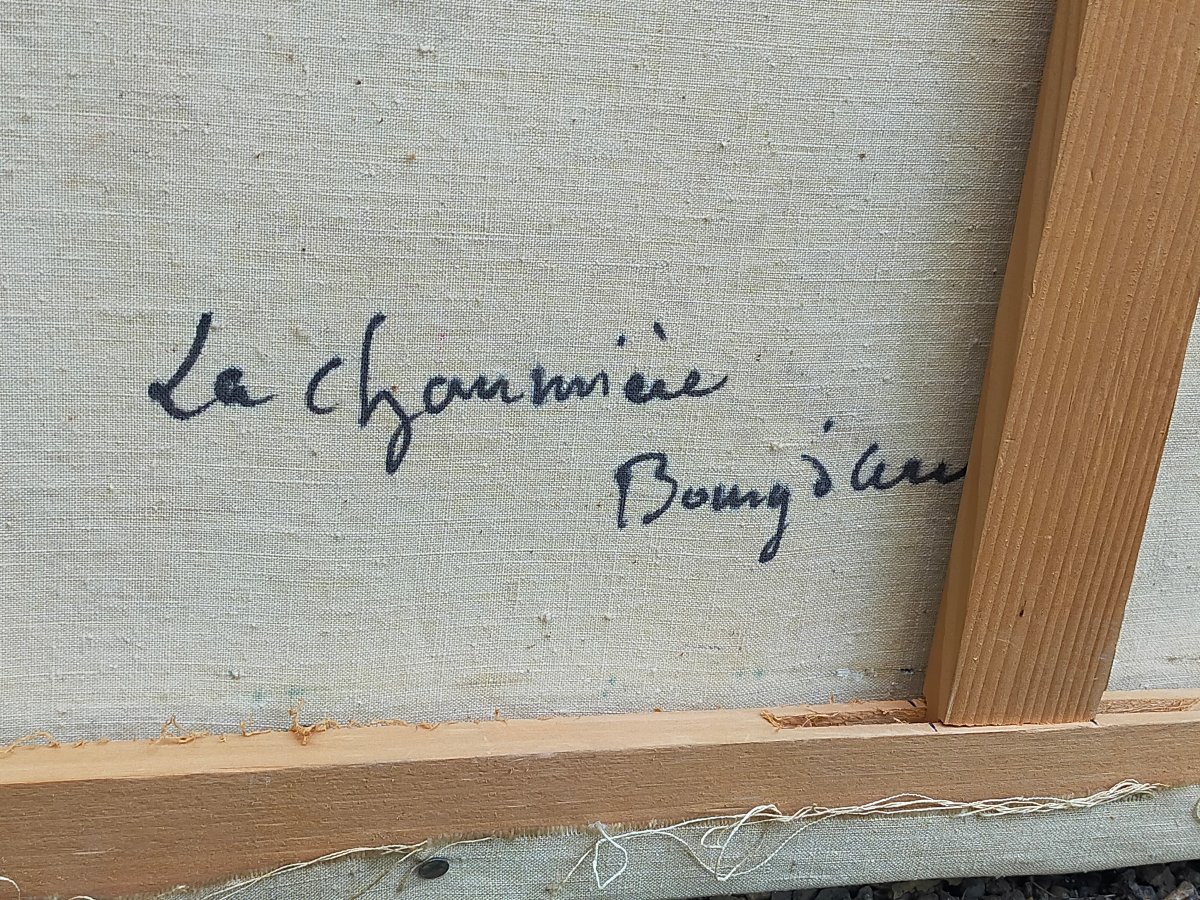 La Chaumière
Bourg